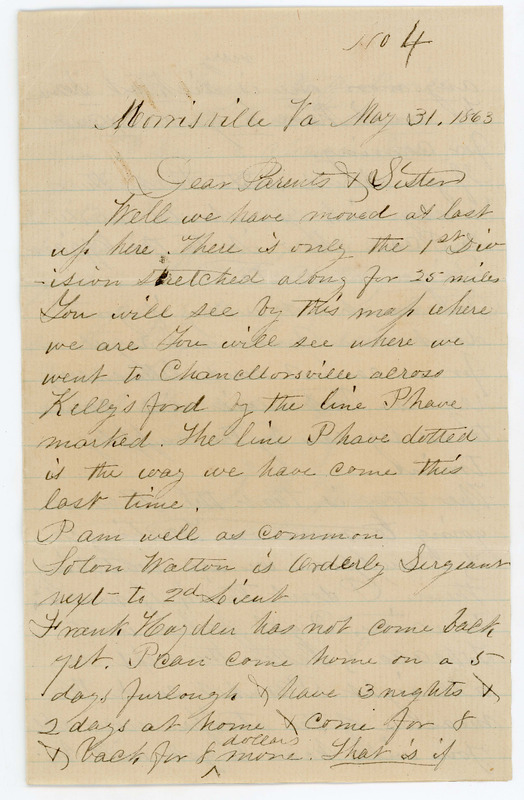 No 4
Morrisville Va May 31. 1863
Dear Parents & Sister
Well we have moved at last
up here. There is only the 1st Div
-ision stretched along for 25 miles
You will see by this map where
we are You will see where we
went to Chancllorsville across
Kelly's ford by the line I have
marked. The line I have dotted
is the way we have come this
last time.
I am well as common
Solon Walton is Orderly Sergeant
next to 2d Lieut
Frank Hayden has not come back
yet. I can come home on a 5
days furlough & have 3 nights &
2 days at home & come for 8
& back for 8 dollars more. That is if